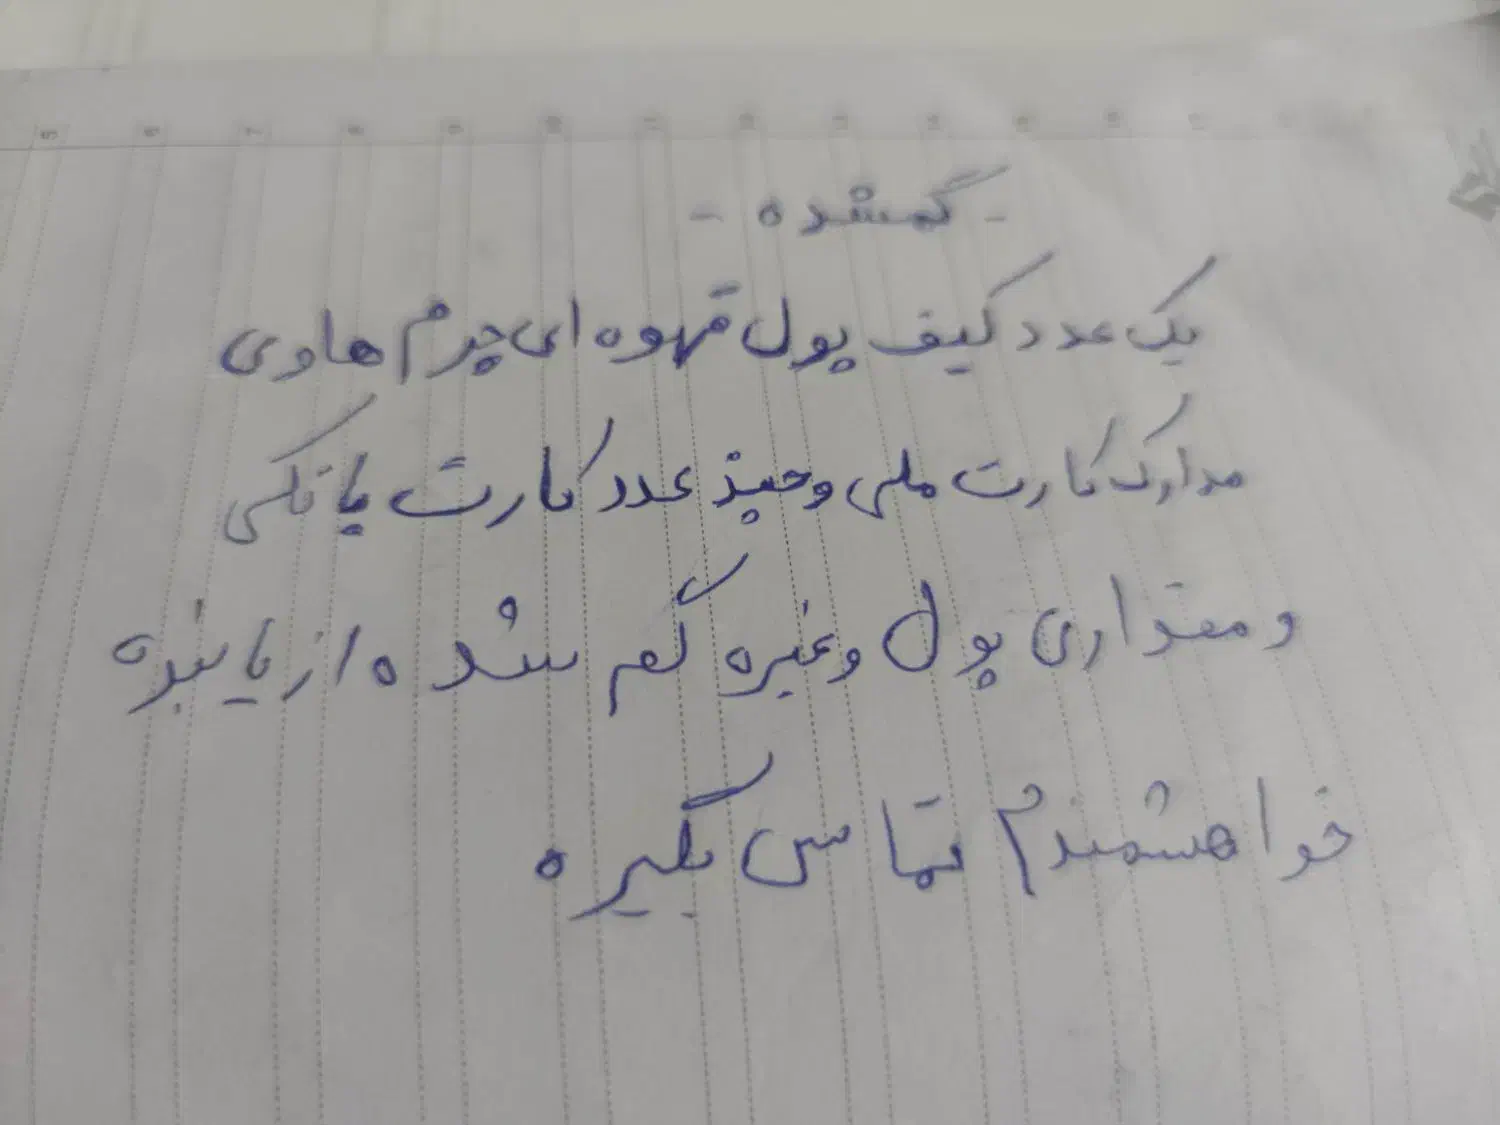 - گمشده -
یک عدد کیف پول قهوه ای چرم هاوی
مدارک کارت ملی و چند عدد کارت بانکی
و مقداری پول و غیره گم شده از یابنده
خواهشمندم تماس بگیره